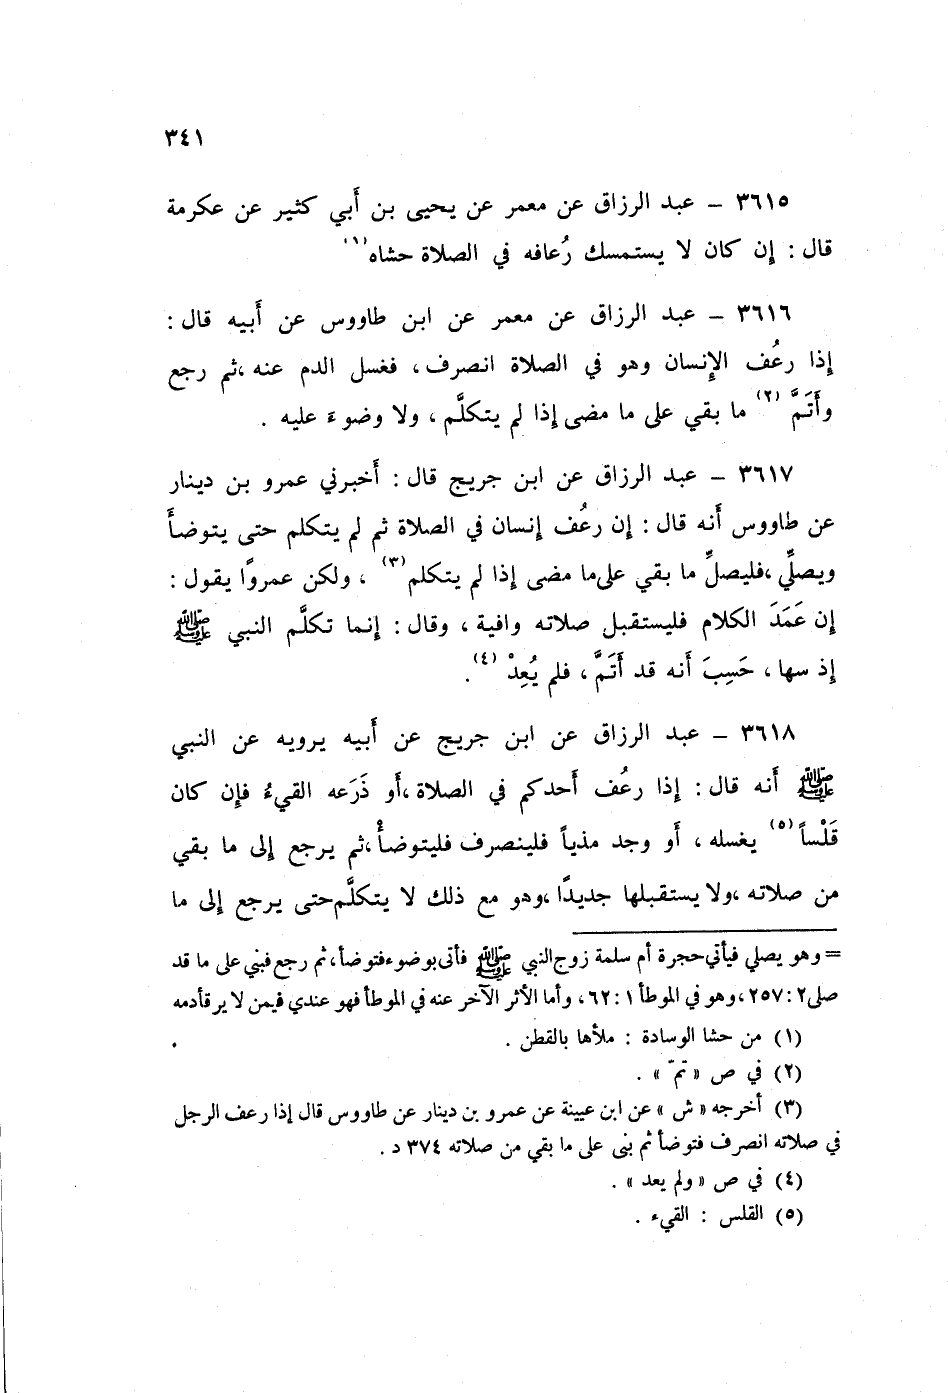 ٣٤١
٣٦١٥ – عبد الرزاق عن معمر عن يحيى بن أَبي كثير عن عكرمة
قال : إِن كان لا يستمسك رُعافه في الصلاة حشاه(١)
٣٦١٦ – عبد الرزاق عن معمر عن ابن طاووس عن أَبيه قال :
إِذا رعُف الإِنسان وهو في الصلاة انصرف ، فغسل الدم عنه ،ثم رجع
وأَتَمَّ (٢) ما بقي على ما مضى إذا لم يتكلَّم ، ولا وضوءَ عليه .
٣٦١٧ – عبد الرزاق عن ابن جريج قال : أَخبرني عمرو بن دينار
عن طاووس أَنه قال : إِن رعُف إِنسان في الصلاة ثم لم يتكلم حتى يتوضأَ
ويصلِّي ،فليصلِّ ما بقي على ما مضى إذا لم يتكلم(٣) ، ولكن عمروًا يقول :
إِن عَمَدَ الكلام فليستقبل صلاته وافية ، وقال : إِنما تكلَّم النبي ﷺ
إِذ سها ، حَسِبَ أَنه قد أَتَمَّ ، فلم يُعِدْ (٤) .
٣٦١٨ – عبد الرزاق عن ابن جريج عن أَبيه يرويه عن النبي
ﷺ أَنه قال : إِذا رعُف أَحدكم في الصلاة ،أَو ذَرَعه القيءُ فإِن كان
قَلْساً (٥) يغسله ، أَو وجد مذياً فلينصرف فليتوضأْ ،ثم يرجع إلى ما بقي
من صلاته ،ولا يستقبلها جديدًا ،وهو مع ذلك لا يتكلَّم حتى يرجع إلى ما
= وهو يصلي فيأتي حجرة أم سلمة زوج النبي ﷺ فأتى بوضوء فتوضأ، ثم رجع فبني على ما قد
صلى ٢ : ٢٥٧ ،وهو في الموطأ ١ : ٦٢ ، وأما الأثر الآخر عنه في الموطأ فهو عندي فيمن لا يرقأ دمه
(١) من حشا الوسادة : ملأها بالقطن .
(٢) في ص « تمّ » .
(٣) أخرجه « ش » عن ابن عيينة عن عمرو بن دينار عن طاووس قال إذا رعف الرجل
في صلاته انصرف فتوضأ ثم بنى على ما بقي من صلاته ٣٧٤ د .
(٤) في ص « ولم يعد » .
(٥) القلس : القيء .